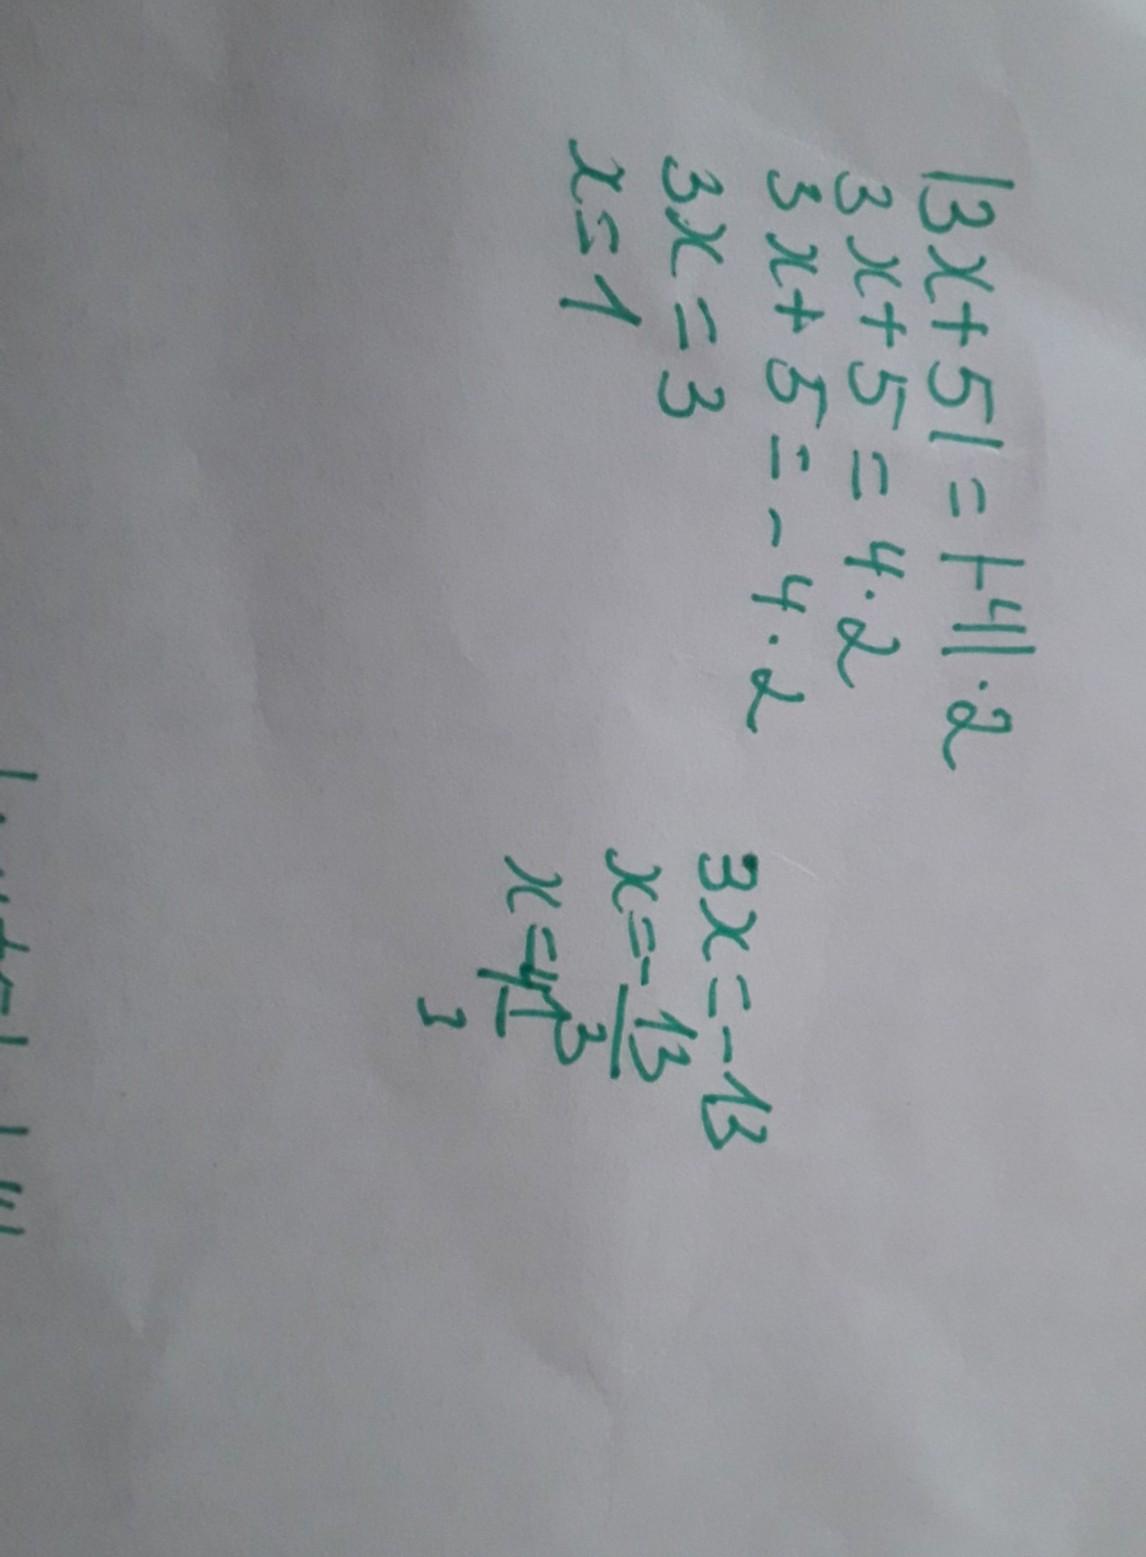 |3x+5|=|-4|·2
3x+5=4·2
3x+5=-4·2
3x=3
x=1
3x=-13
x=-13/3